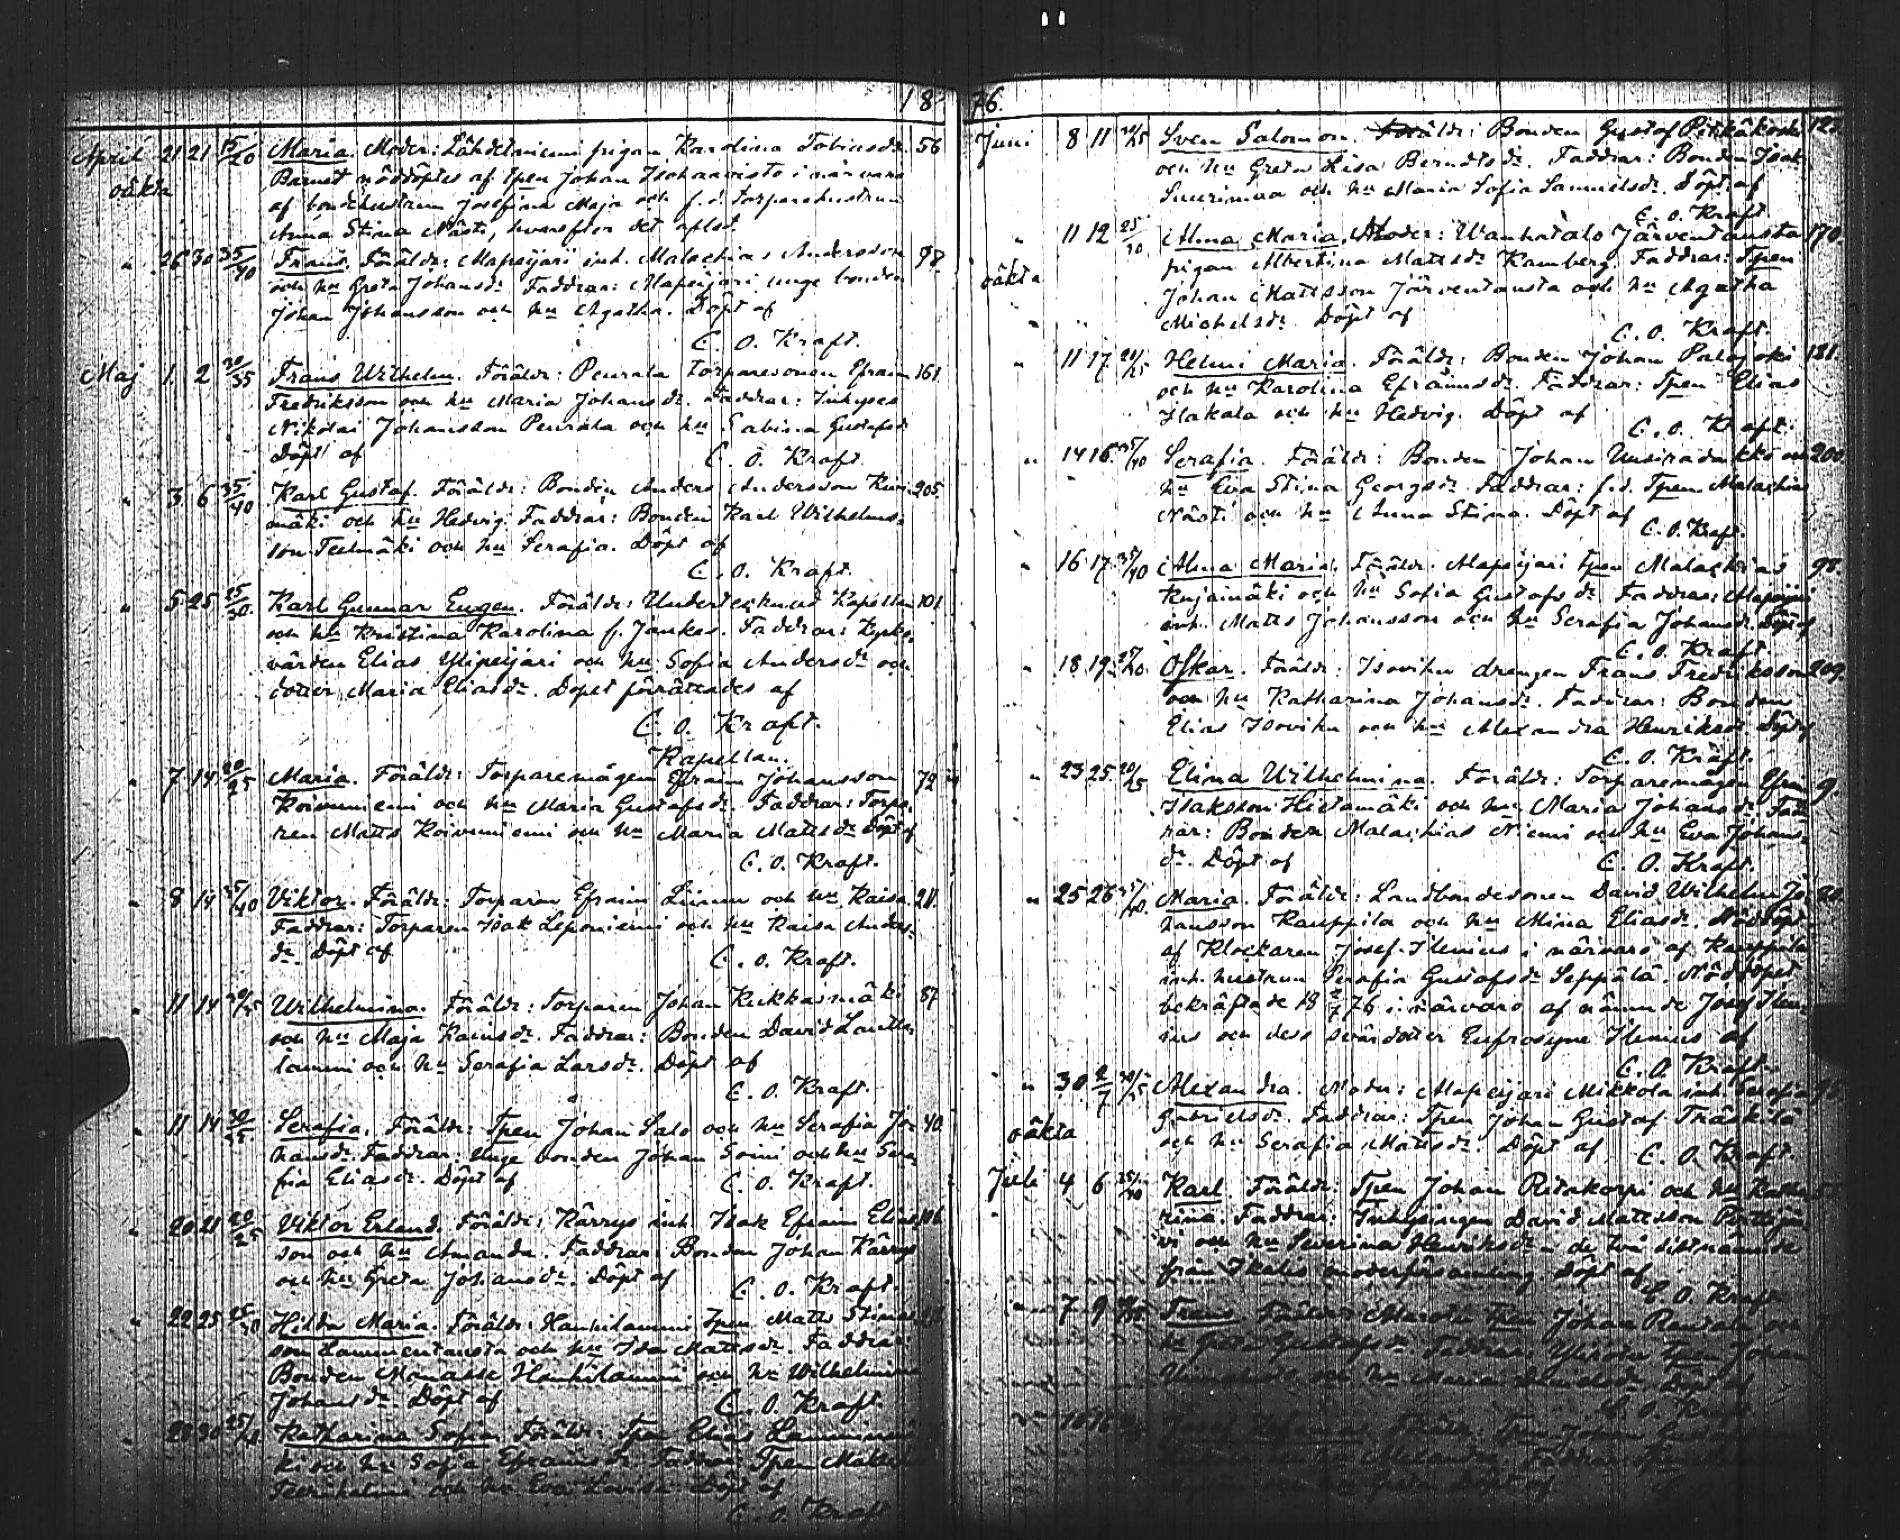 18
April 21 21 15/20 Maria. Moder: Lähdeniemi pigan Karolina Tobiasdr. 56
oäkta Barnet nöddöptes af tpen Johan Isohaavisto i närvaro
af bondhustrun Josefina Maja och f.d. torparehustrun
Anna Stina Nästi, hvarefter det aflöst.
" 26 30 35/40 Frans. Föräldr: Mapeijari inh. Malachias Andersson 98.
och hu Greta Johansdr. Faddrar: Mapeijari unge bonden
Johan Johansson och hu Agatha. Döpt af
C. O. Kraft.
Maj 1. 2 30/35 Frans Wilhelm. Föräldr: Peurala torparesonen Efraim 161.
Fredriksson och hu Maria Johansdr. Faddrar: Inhyses
Nikolai Johansson Peurala och hu Sabina Gustafsdr
Döpt af
C. O. Kraft.
" 3. 6 35/40 Karl Gustaf. Föräldr: Bonden Anders Andersson 205.
mäki och hu Hedvig. Faddrar: Bonden Karl Wilhelms-
son Teelmäki och hu Serafia. Döpt af
C. O. Kraft.
" 5 25 25/30. Karl Gunnar Eugen. Föräldr: Undertecknad Kapellan 101
och hu Kristina Karolina f. Jankes. Faddrar: Kyrko-
värden Elias Ylipeijari och hu Sofia Andersdr och
dotter Maria Eliasdr. Dopet förrättades af
C. O. Kraft.
Kapellan.
" 7 14 20/25 Maria. Föräldr: Torparemågen Efraim Johansson 72
Koivuniemi och hu Maria Gustafsdr. Faddrar: Torpa-
ren Matts Koivuniemi och hu Maria Mattsdr. Döpt af
C. O. Kraft.
" 8 14 35/40 Viktor. Föräldr: Torparen Efraim och hu Kaisa. 211.
Faddrar: Torparen Isak Leponiemi och hu Kaisa Anders-
dr. Döpt af
C. O. Kraft.
" 11 14 Wilhelmina. Föräldr: Torparen Johan Kukkasmäki 87
och hu Maja Kaisadr. Faddrar: Bonden David Lautta-
lammi och hu Serafia Larsdr. Döpt af
C. O. Kraft.
" 11 14 Serafia. Föräldr: Tpen Johan Salo och hu Serafia Jo- 40
hansdr. Faddrar: Unge bonden Johan Soini och hu Sera-
fia Eliasdr. Döpt af
C. O. Kraft.
" 20 21 20/25 Viktor Erland. Föräldr: Kärrys inh. Isak Efraim Elias- 106
son och hu Amanda. Faddrar: Bonden Johan Kärrys
och hu Greta Johansdr. Döpt af
C. O. Kraft.
" 22 25 25/30 Hilda Maria. Föräldr: Hankilammi tpen Matts
son Lammentausta och hu Ida Mattsdr. Faddrar:
Bonden Manasse Hankilammi och hu Wilhelmina
Johansdr. Döpt af
C. O. Kraft.
" 28 30 Katharina Sofia. Föräldr: Tpen Elias
ki och hu Sofia Efraimsdr. Faddrar: Tpen Matts
och hu Eva Lovisa. Döpt af
C. O. Kraft
76.
Juni 8 11 20/25 Sven Salomon. Föräldr: Bonden Gustaf Pitkäkoski 125.
och hu Greta Lisa Berndtsdr. Faddrar: Bonden Isak
och hu Maria Sofia Samuelsdr. Döpt af
C. O. Kraft
" 11 12 25/30 Alma Maria. Moder: Wanhatalo Järventausta 170.
oäkta pigan Albertina Mattsdr Kamberg. Faddrar: Tpen
Johan Mattsson Järventausta och hu Agatha
Michelsdr. Döpt af
C. O. Kraft.
" 11 17 20/25 Helmi Maria. Föräldr: Bonden Johan Palojoki 181.
och hu Karolina Efraimsdr. Faddrar: Tpen Elias
Hakala och hu Hedvig. Döpt af
C. O. Kraft.
" 14 16 35/40 Serafia. Föräldr: Bonden Johan och 200
hu Eva Stina Georgsdr. Faddrar: f.d. Tpen Malachias
Nästi och hu Anna Stina. Döpt af
C. O. Kraft.
" 16 17 35/40 Alma Maria. Föräldr: Mapeijari tpen Malachias 98.
Kujanmäki och hu Sofia Gustafsdr. Faddrar: Mapeijari
inh. Matts Johansson och hu Serafia Johansdr. Döpt af
C. O. Kraft.
" 18 19 Oskar. Föräldr: Isovihu drengen Frans Fredriksson 209.
och hu Katharina Johansdr. Faddrar: Bonden
Elias Isovihu och hu Alexandra Henriksdr. Döpt af
C. O. Kraft.
" 23 25 20/25 Elina Wilhelmina. Föräldr: Torparemågen Efrm 9.
Isaksson Hietamäki och hu Maria Johansdr. Fadd-
rar: Bonden Malachias Niemi och hu Eva Johans-
dr. Döpt af
C. O. Kraft.
" 25 26 35/40. Maria. Föräldr: Landbondesonen David Wilhelm Jo-
hansson Kauppila och hu Mina Eliasdr. Nöddöpt
af Klockaren Josef Ilenius i närvaro af Kauppila
inh. hustrun Serafia Gustafsdr Seppälä. Nöddopet
bekräftade 18 2/7 76 i närvaro af nämnde Josef Ilen-
ius och dess svärdotter Eufrosyne Ilenius af
C. O. Kraft.
" 30 2/7 Alexandra. Moder: Mapeijari Mikkola inh. Serafia
oäkta Gabrielsdr. Faddrar: Tpen Johan Gustaf Träskilä
och hu Serafia Mattsdr. Döpt af C. O. Kraft.
Juli 4 6 25/30 Karl. Föräldr: Tpen Johan Ritakorpi och hu Katha-
rina. Faddrar: Inhysingen David Mattsson
och hu Sewerina Henriksdr – de två sistnämnde
från Ikalis moderförsamling. Döpt af
C. O. Kraft
" 7 9 Frans. Föräldr: tpen Johan och
hu Greta Gustafsdr. Faddrar: tpen Johan
och hu Maria Döpt af
C. O. Kraft